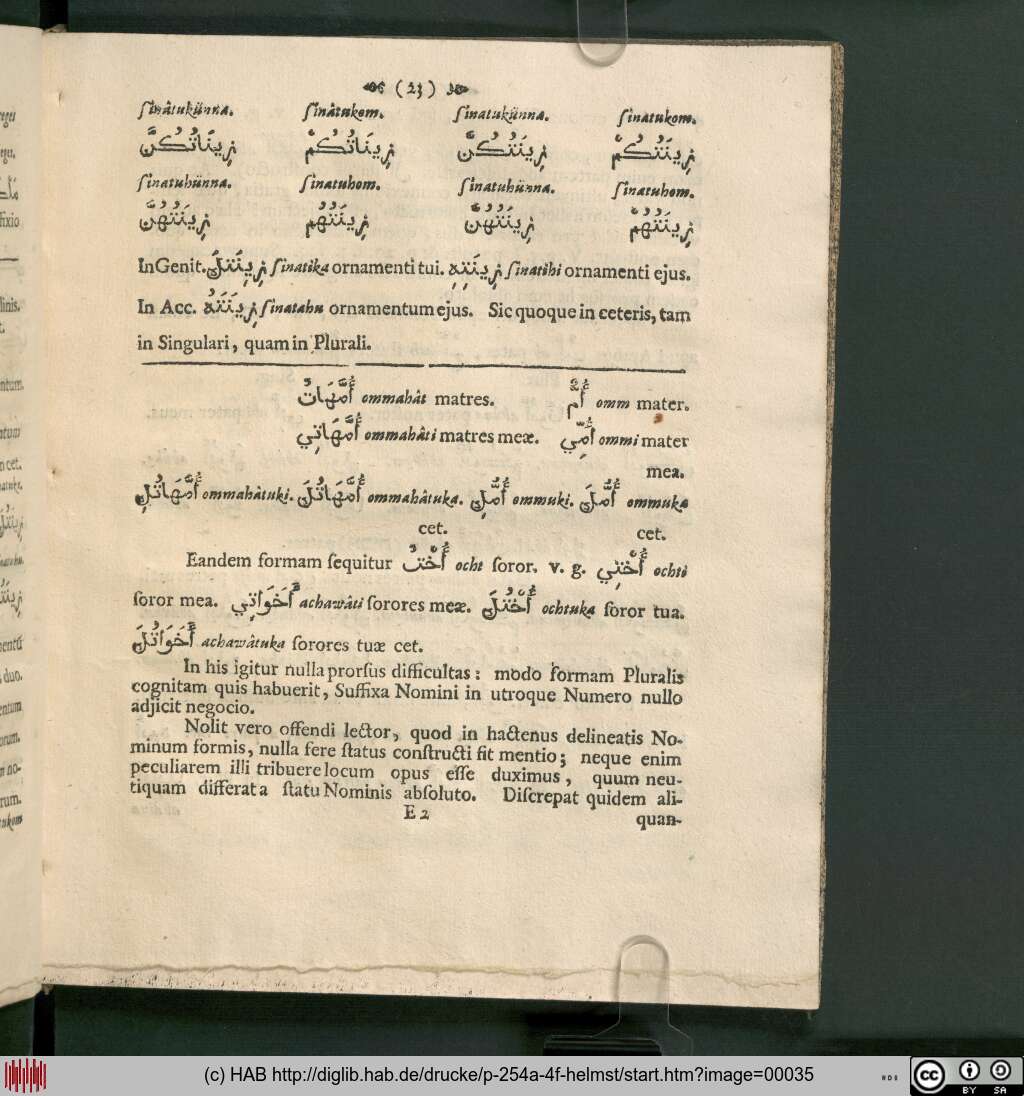 (23)
ſinâtukünna. ſinâtukom. ſinatukünna. ſinatukom.
زِينَاتُكُنَّ زِينَاتُكُمْ زِينَتُكُنَّ زِينَتُكُمْ
ſinatuhünna. ſinatuhom. ſinatuhünna. ſinatuhom.
زِينَتُهُنَّ زِينَتُهُم زِينَتُهُنَّ زِينَتُهُمْ
In Genit. زِينَتِكَ ſinatika ornamenti tui. زِينَتِهِ ſinatihi ornamenti ejus.
In Acc. زِينَتَهُ ſinatahu ornamentum ejus. Sic quoque in ceteris, tam
in Singulari, quam in Plurali.
أُمَّهَاتٌ ommahât matres. أُمٌّ omm mater.
أُمَّهَاتِي ommahâti matres meæ. أُمِّي ommi mater
mea.
أُمَّهَاتُكِ ommahâtuki. أُمَّهَاتُكَ ommahâtuka. أُمُّكِ ommuki. أُمُّكَ ommuka
cet. cet.
Eandem formam ſequitur أُخْتٌ ocht ſoror. v. g. أُخْتِي ochti
ſoror mea. أَخَوَاتِي achawâti ſorores meæ. أُخْتُكَ ochtuka ſoror tua.
أَخَوَاتُكَ achawâtuka ſorores tuæ cet.
In his igitur nulla prorſus difficultas: modo formam Pluralis
cognitam quis habuerit, Suffixa Nomini in utroque Numero nullo
adjicit negocio.
Nolit vero offendi lector, quod in hactenus delineatis No-
minum formis, nulla fere ſtatus conſtructi fit mentio; neque enim
peculiarem illi tribuere locum opus eſſe duximus, quum neu-
tiquam differat a ſtatu Nominis abſoluto. Diſcrepat quidem ali-
E 2 quan-
(c) HAB http://diglib.hab.de/drucke/p-254a-4f-helmst/start.htm?image=00035
cc BY SA